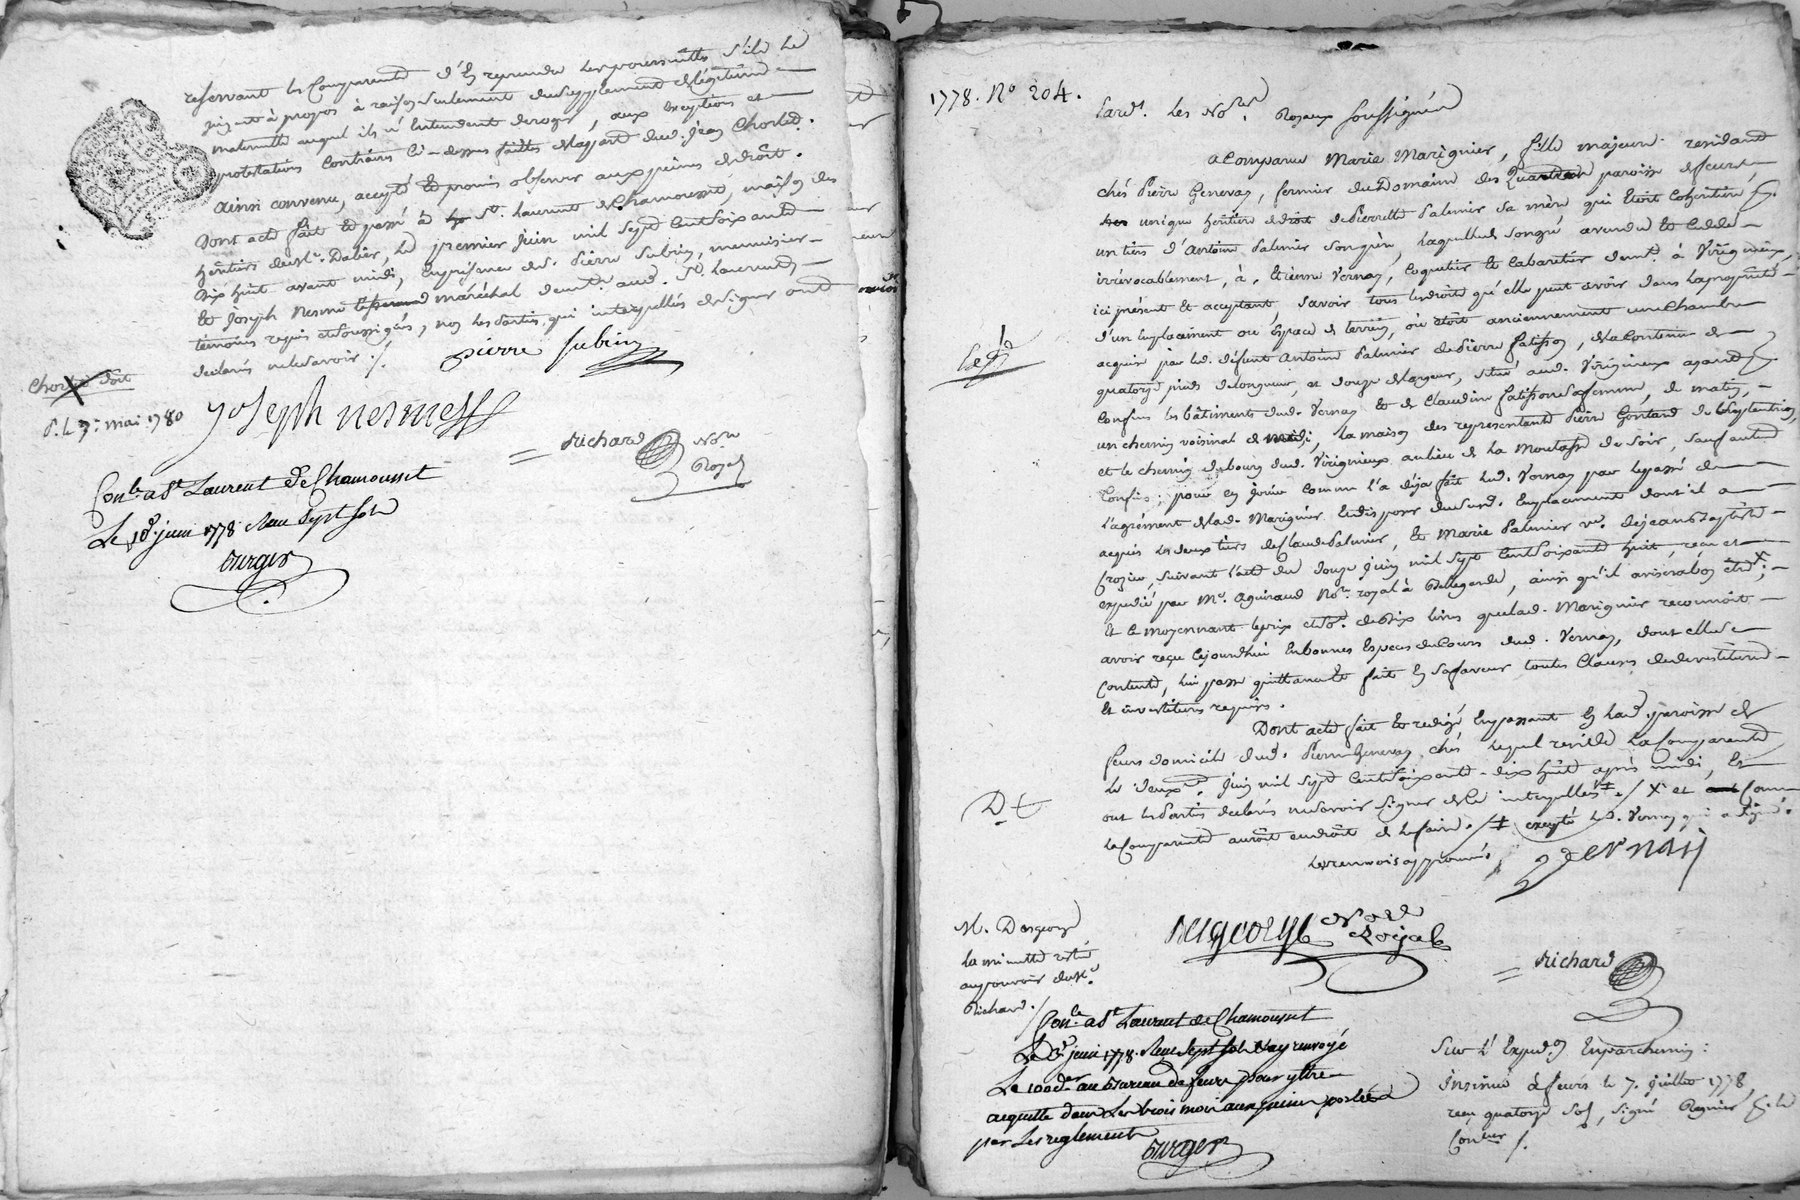 reservant les Comparants d'En reprendre les poursuittes s'ils le
jugent à propos à raison seulement du supplement de légitime
maternelle auquel ils n'Entendent deroger, aux exceptions et
protestations Contraires Ci-dessus faittes de la part dud. Jean Chorlet.
Ainsi convenu, accepté Et promis observer aux peines de droit.
Dont acte fait Et passé à St. Laurent de Chamousset, maison des
héritiers de Me. Dalier, Le premier juin mil Sept Cent Soixante
dix huit avant midi, En présence de Sr. Pierre Subrin, menuisier
Et Joseph Nesme maréchal demt. aud. St. Laurent
témoins requis et Soussignés, non les parties qui interpellées de Signer ont
declarés ne le Savoir ./.
pierre Subrin
Chorlet doit
P. L. 7e. mai 1780
Joseph nesmess
Richard Nore
Royal
Conle. a St Laurent De Chamousset
Le 10 juin 1778 Reçu Sept Sols
Burger
1778. No 204.
Pardt. Les Nores. Royaux Soussignés
a Comparu Marie Marignier, fille majeure residant
chés Pierre Genevay, fermier du Domaine des paroisse de feurs,
unique héritiere de droit de Pierrette Palmier Sa mère qui Etoit Cohéritiere Pr.
un tiers d'Antoine Palmier Son père, Laquelle de Son gré a vendu Et Cedde
irrévocablement, à, Etienne Vernay, Coquetier Et Cabaretier demt. à Virigneux,
ici présent Et acceptant, Savoir tous les droits qu'elle peut avoir dans la propriété
d'un Emplacement ou Espace de terrein, où étoit anciennement une Chambre
acquise par led. défunt Antoine Palmier de Pierre, de la Contenue de
quatorze pieds de longueur, et douze de largeur, Situé aud. Virigneux ayant Pr.
Confins les bâtiments dud. Vernay Et de Claudine Sa femme, de matin,
un chemin voisinal de midi, la maison des representants Pierre Gontard de Septentrion,
et le chemin du bourg dud. Virigneux au lieu de la de Soir, Sauf autres
Confins; pour En jouir Comme l'a déja fait led. Vernay par le passé de
l'agrément de lad. Marignier Et disposer du Surd. Emplacement dont il a
acquis les deux tiers de Claude Palmier, Et Marie Palmier ve. de jean Baptiste
Crozier, Suivant l'acte du douze juin mil Sept Cent Soixante huit, reçu et
expedié par Me. Aguiraud Nore. royal à Bellegarde, ainsi qu'il avisera bon être X;
Et le moyennant le prix et Se. de Six livres que lad. Marignier reconnoit
avoir reçu Cejourd'hui En bonnes Espèces de Cours dud. Vernay, dont elle Se
Contente, lui passe quittance Et fait En Sa faveur toutes Clauses de devestiture
Et investiture requises.
Dont acte fait Et redigé En passant En lad. paroisse de
feurs domicile dud. Pierre Genevay chés lequel reside la Comparante
le deuxe. juin mil Sept Cent Soixante-dix huit après midi, Et
ont les Parties declarés ne Savoir Signer de Ce interpellées ‡./ X et Comme
la Comparante auroit eu droit de le faire. / ‡ excepté led. Vernay qui a Signé.
les renvois approuvés,
Vernay
D. t
M. Desgeorge
la minutte restée
au pouvoir de Me.
Richard ./
Desgeorge Nore
Royal
Richard
Conle. a St Laurent de Chamousset
Le juin 1778. Reçu Sept Sols Et ay renvoyé
Le 100 der au Bureau de feurs pour y Etre
acquitté dans Les trois mois aux peines portées
par Les reglements
Burger
Sur l'Expedon En parchemin:
Insinué à feurs le 7. juillet 1778,
reçu quatorze Sols, Signé Regnier Pr. le
Conteur ./.